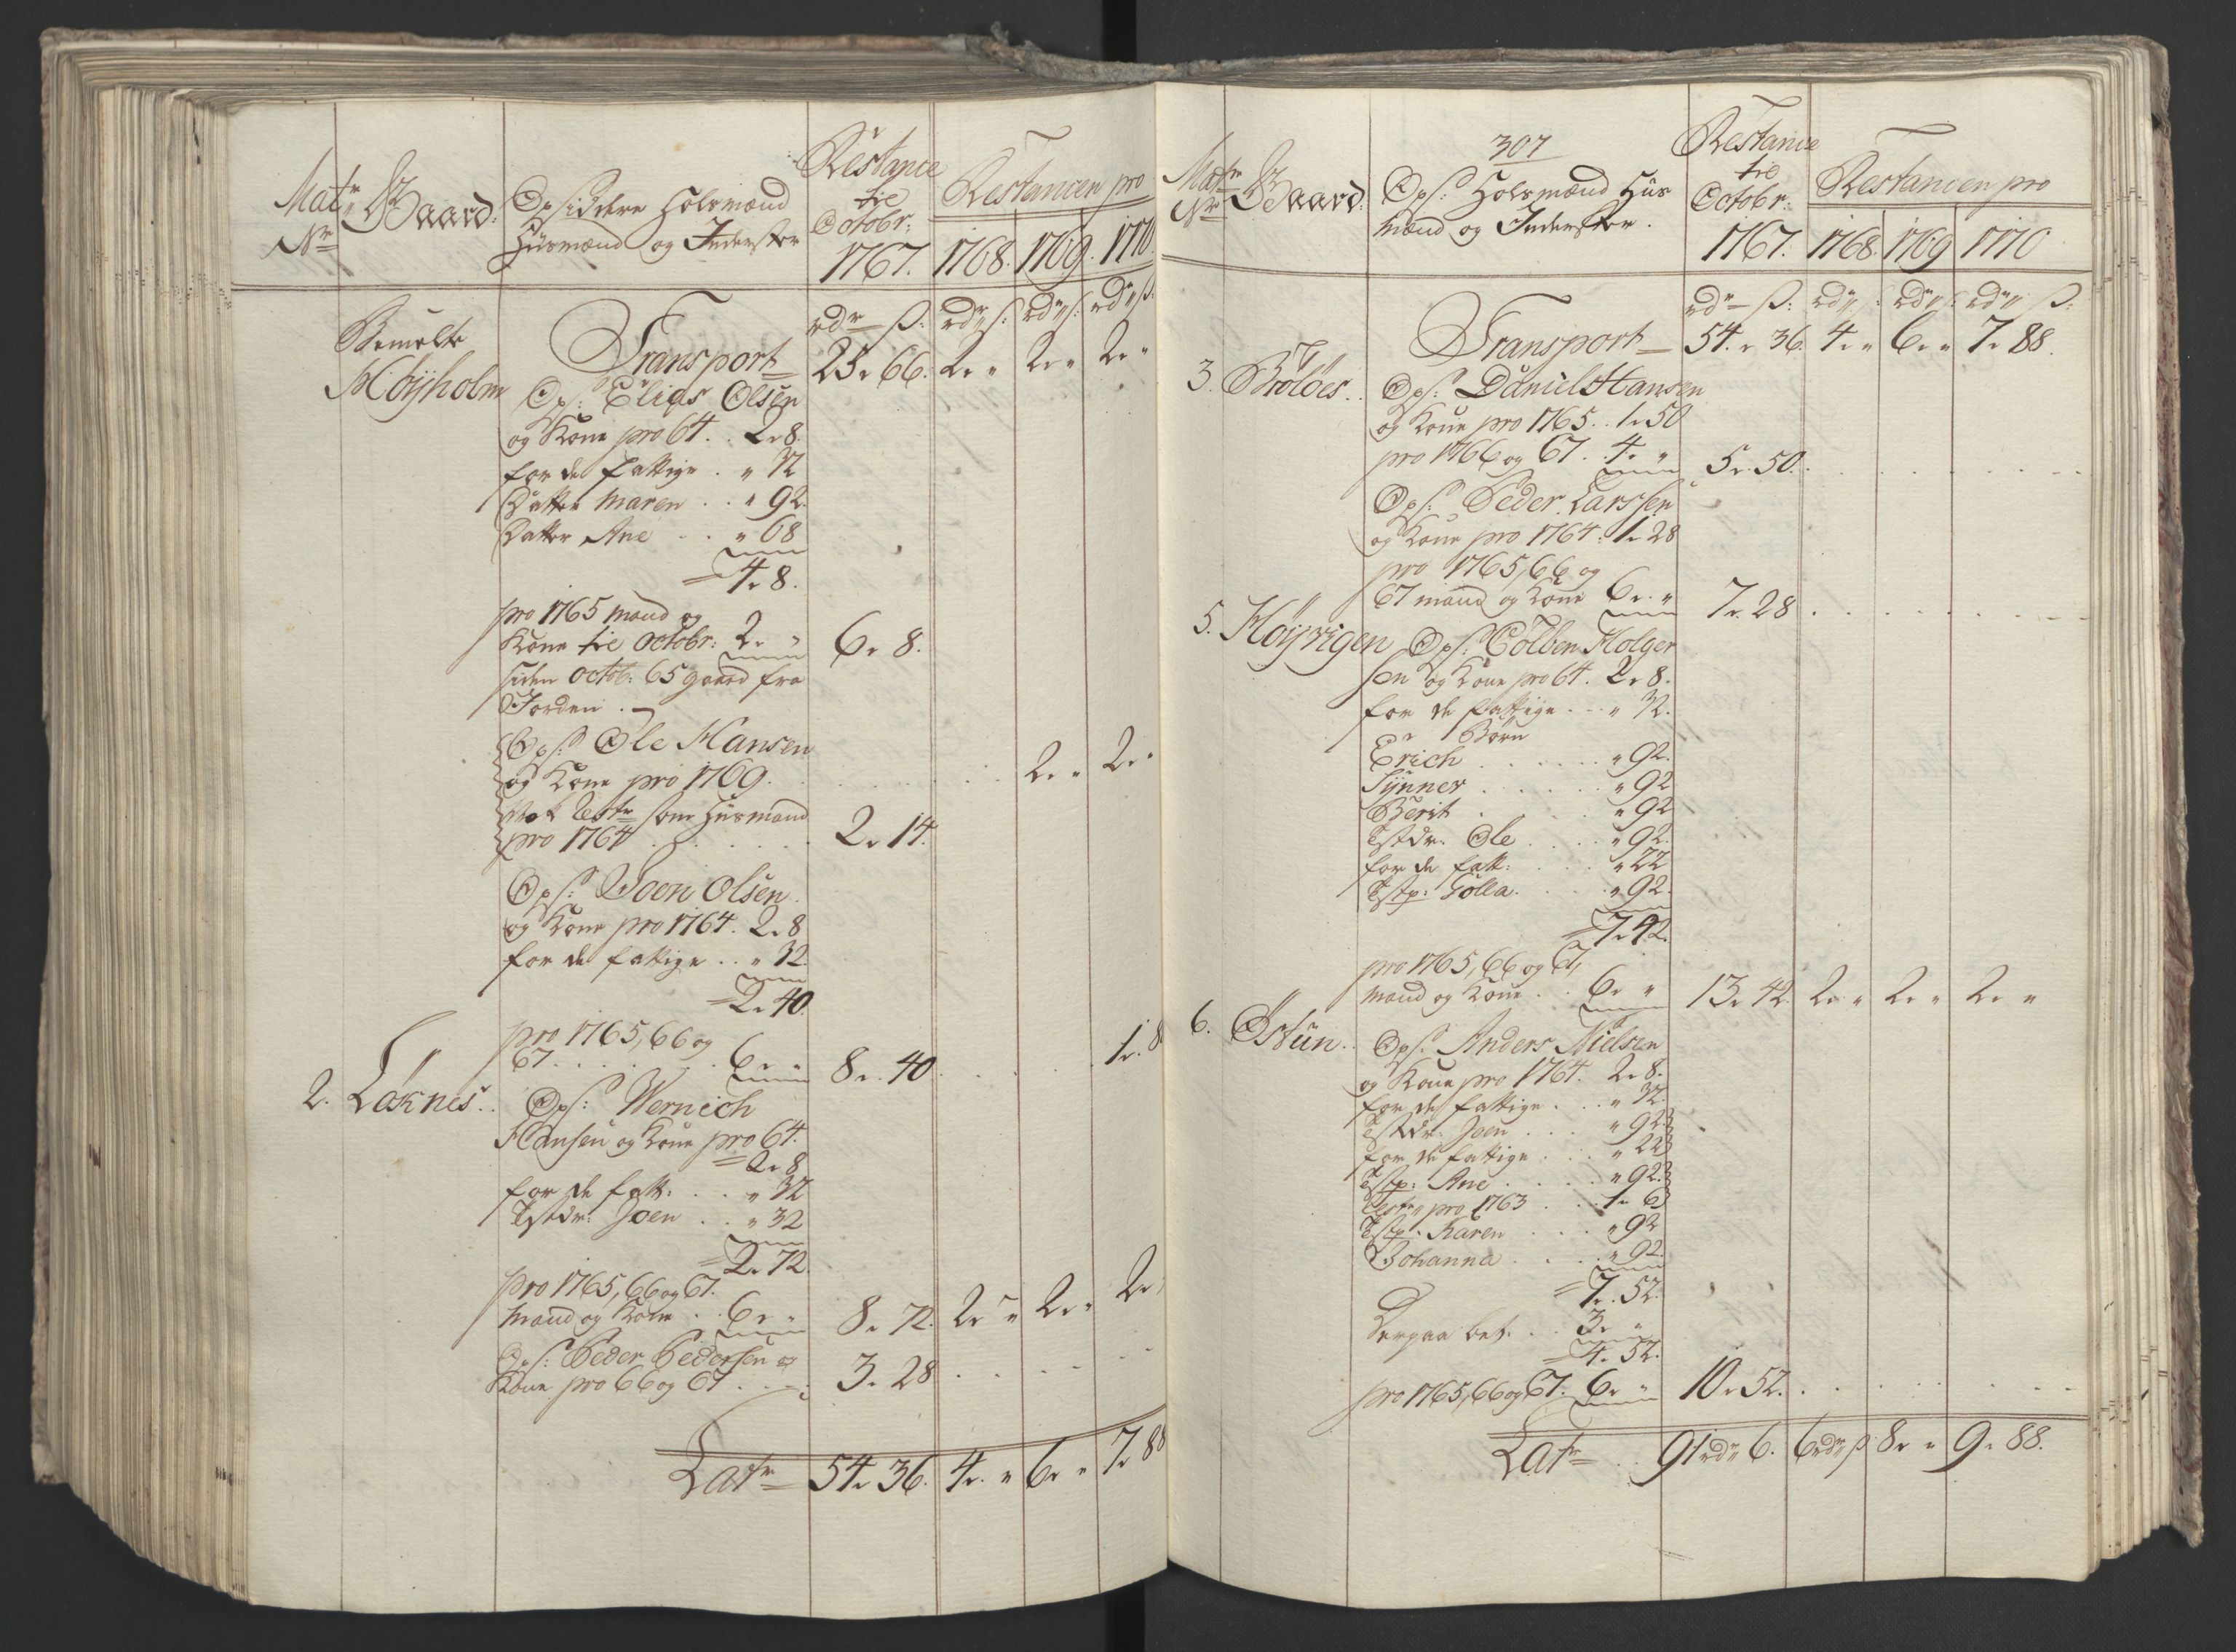 Matr Nr
Gaard:
Opsiddere Holsmænd
Huusmænd og Inderster
Restance
til
Octobr:
1767.
Restancen pro
1768. 1769. 1770.
rdr ß: rdr ß: rdr ß: rdr ß:
Bemelte
Høijholm
Transport 25 r 66. 2 r " 2 r " 2 r "
Op: Elias Olsen
og Kone pro 64. . 2 r 8.
for de fattige . " 32
Datter Maren . . " 92.
Datter Ane . . " 68
4 r 8.
pro 1765 Mand og
Kone til Octobr: 2 r " 6 r 8.
siden Octob: 65 gaaed fra
Jorden .
Ops: Ole Hansen
og Kone pro 1769. . . . 2 r " 2 r "
Nok Restr som Huusmand
pro 1764 . . . . . 2 r 14.
Ops: Joen Olsen
og Kone pro 1764. 2 r 8
for de fattige . . " 32.
2 r 40
pro 1765, 66 og
67. . . . . . 6 r " 8 r 40 . . . . . 1 r. 8
2. Løknes. . Ops: Wernich
Hansen og Kone pro 64.
2 r 8
for de fatt: . . " 32
Tstdr: Joen . . " 32
2 r 72.
pro 1765, 66 og 67.
Mand og Kone . . 6 r " 8 r 72. 2 r " 2 r " 2 r
Ops: Peder Pedersen og
Kone pro 66 og 67 . . . 3 r 28 . . .
Latr 54 r 36. 4 r. " 6 r " 7 r 88
307
Matr Nr
Gaard:
Ops: Holsmænd Huus
mænd og Inderster.
Restance
til
Octobr:
1767.
Restancen pro
1768. 1769 1770
rdr ß: rdr ß: rdr ß: rdr ß:
Transport 54. r 36. 4 r " 6 r " 7 r 88.
3. Broløes. . Ops: Daniel Hansen
og Kone pro 1765. . 1 r 50
pro 1766 og 67. 4 r " 5 r. 50. . . .
Ops: Peder Larssen
og Kone pro 1764: 1 r 28
pro 1765, 66 og
67 mand og Kone 6 r. " 7 r. 28 . . . .
5. Høijvigen Ops: Colben Holger
sen og Kone pro 64. 2 r 8.
for de fattige . . . " 32.
Børn
Erich . . . . . . " 92.
Synner . . . . . " 92
Berit . . . . " 92
Tstdr. Ole . . . . " 92.
for de fatt: . . . " 22
Tstp: Golla . . . . " 92.
7 r 42.
pro 1765, 66 og 67,
Mand og Kone . . 6 r " 13 r 42. 2 r " 2 r " 2 r "
6. Østun. . Ops. Anders Nielsen
og Kone pro 1764. 2 r 8.
for de fattige . . . " 32.
Tstdr: Joen . . . " 92
for de fattige . . . " 22
Tstp: Ane . . . . " 92.
Restr pro 1763 . . . 1 r 6
Tstp. Karen . . . " 92
Johanna . . . . " 92.
7 r. 52.
Derpaa bet: . . 3 r "
4 r 52.
pro 1765, 66 og 67. 6 r " 10 r 52. . . . .
Latr . . 91 rdr 6. 6 rdr ß 8 r " 9 r 88.